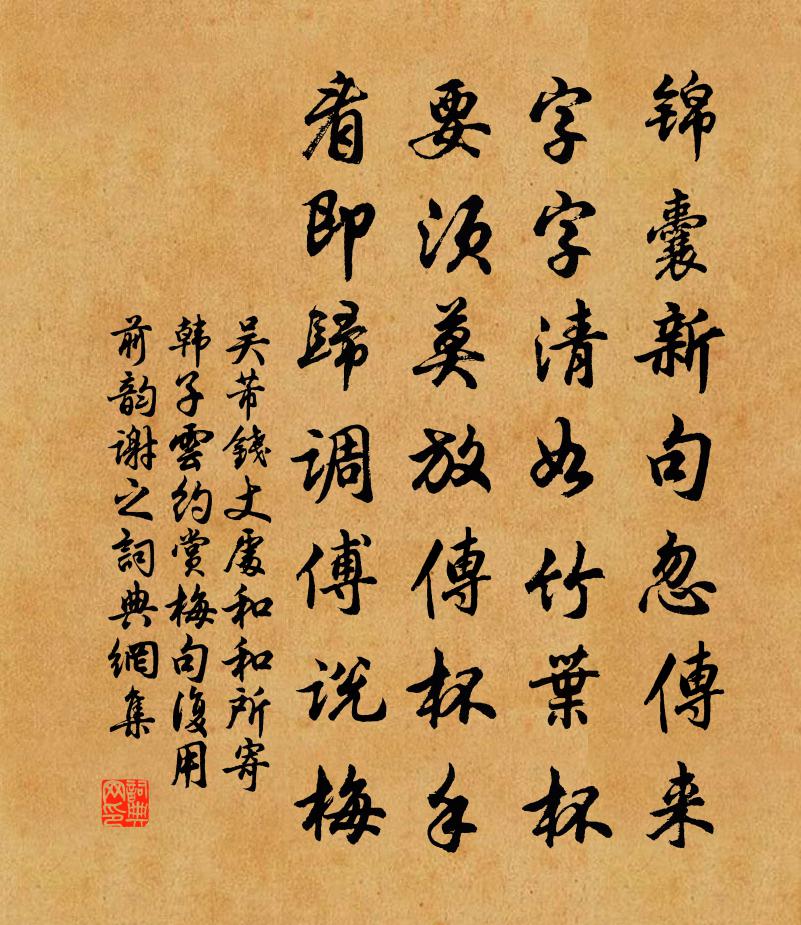 锦囊新句忽傳来
字字清如竹葉杯
要須莫放傳杯手
看即歸調傅说梅
吴芾錢丈處和和所寄
韩子雲約赏梅句復用
前韵谢之詞典網集
詞典网印